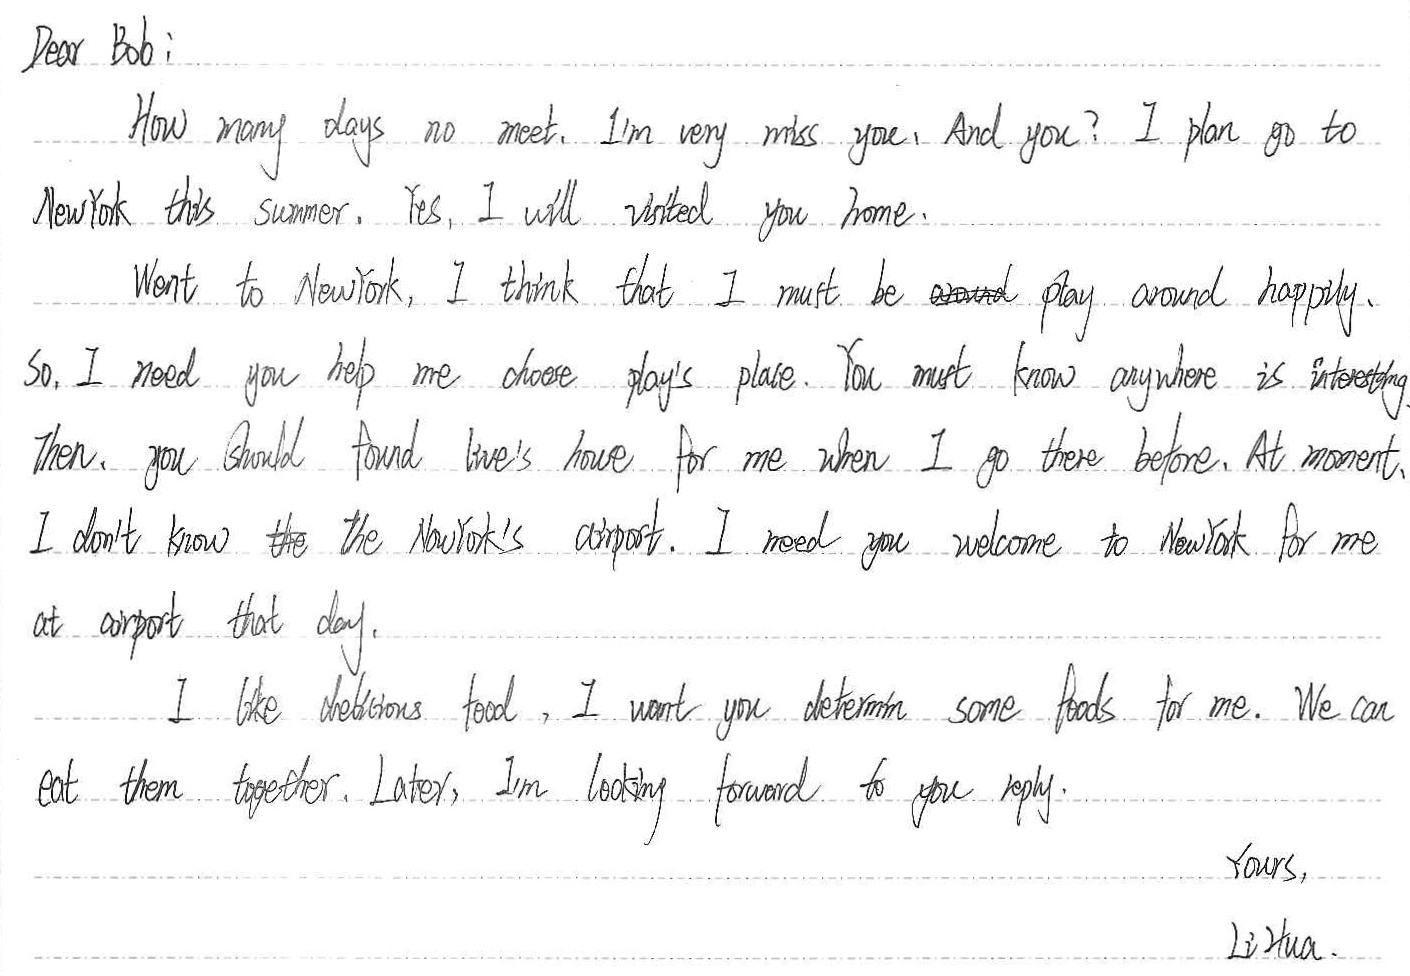 Dear Bob:
How many days no meet. I'm very miss you. And you? I plan go to
NewYork this summer. Yes, I will visited you home.
Went to NewYork, I think that I must be play around happily.
So, I need you help me choose play's place. You must know anywhere is interesting.
Then, you should found live's house for me when I go there before. At moment,
I don't know the NewYork's airport. I need you welcome to NewYork for me
at airport that day.
I like debicious food, I want you determin some foods for me. We can
eat them together. Later, I'm looking forward to you reply.
Yours,
Li Hua.